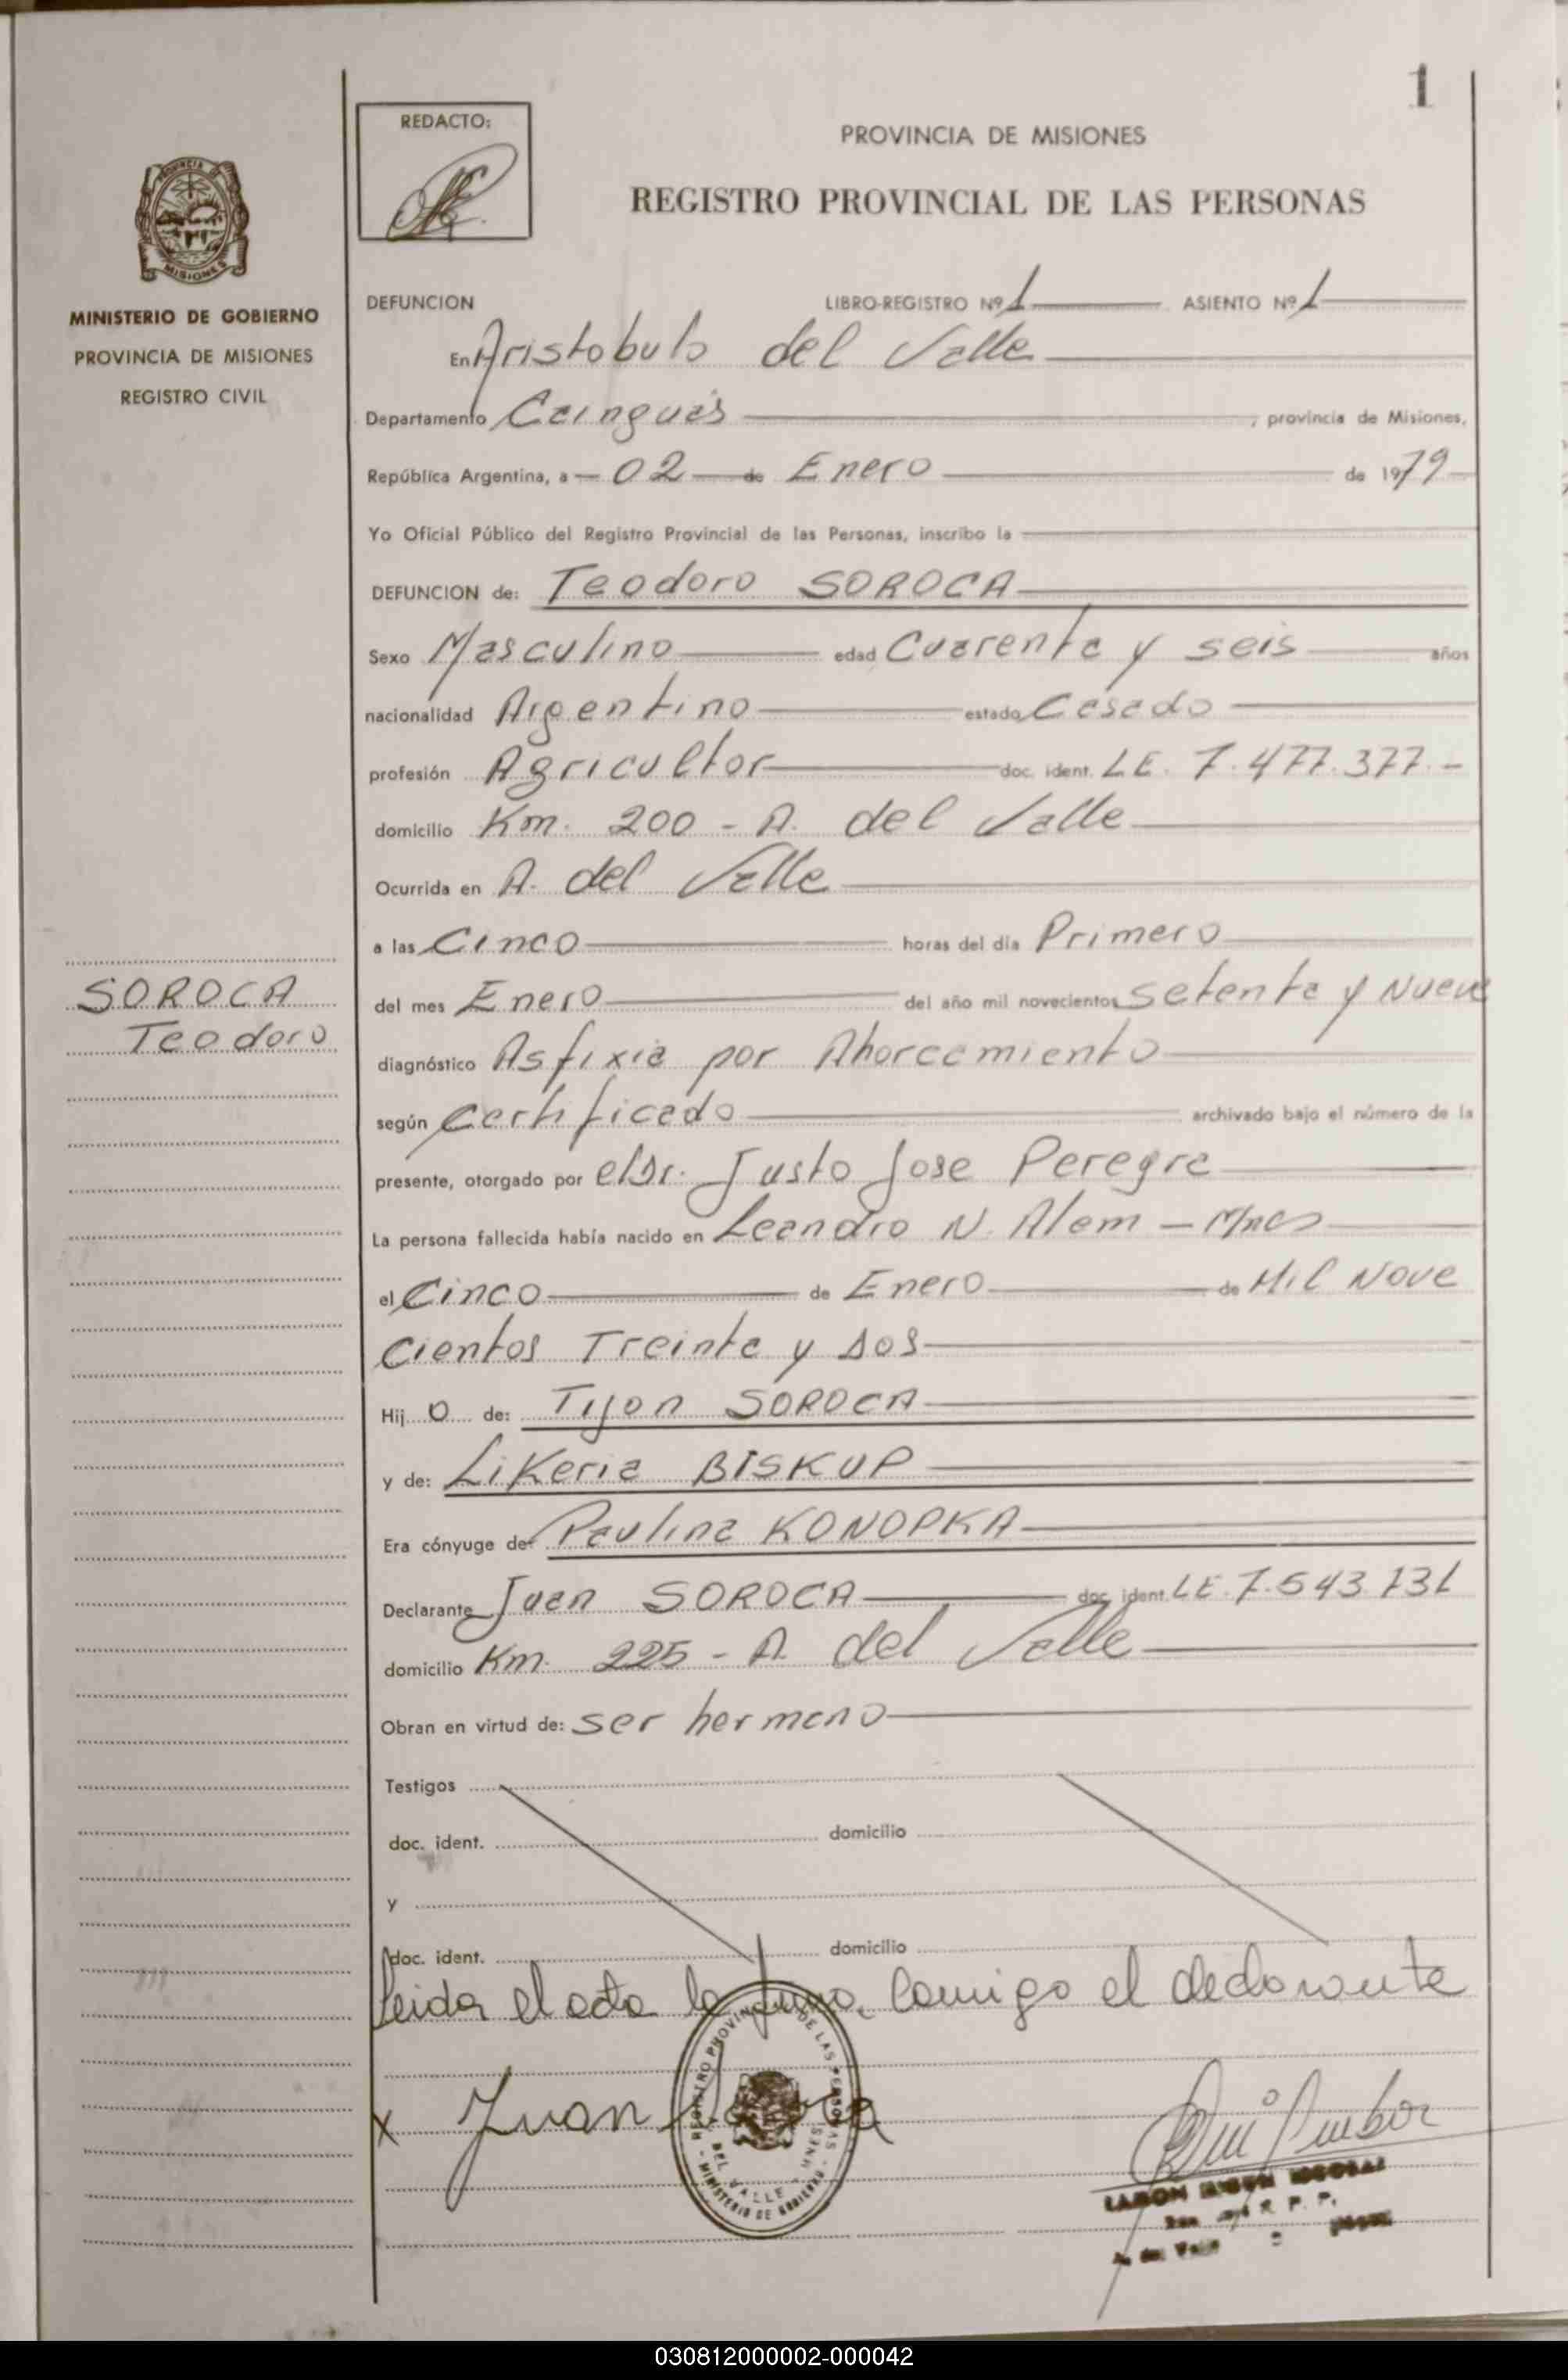 1
REDACTO:
PROVINCIA DE MISIONES
REGISTRO PROVINCIAL DE LAS PERSONAS
PROVINCIA DE
MISIONES
MINISTERIO DE GOBIERNO
PROVINCIA DE MISIONES
REGISTRO CIVIL
DEFUNCION LIBRO-REGISTRO Nº 1 ASIENTO Nº 1
En Aristobulo del Valle
Departamento Cainguás, provincia de Misiones,
República Argentina, a 02 de Enero de 1979
Yo Oficial Público del Registro Provincial de las Personas, inscribo la
DEFUNCION de: Teodoro SOROCA
Sexo Masculino edad Cuarenta y seis años
nacionalidad Argentino estado Casado
profesión Agricultor doc. ident. LE. 7.477.377.-
domicilio Km. 200 - A. del Valle
Ocurrida en A. del Valle
a las Cinco horas del día Primero
del mes Enero del año mil novecientos Setenta y Nueve
diagnóstico Asfixia por Ahorcamiento
según Certificado archivado bajo el número de la
presente, otorgado por el Dr. Justo Jose Peregra
La persona fallecida había nacido en Leandro N. Alem - Mnes
el Cinco de Enero de Mil Nove
cientos Treinta y Dos
Hij o de: Tijon SOROCA
y de: Likeria BISKUP
Era cónyuge de Paulina KONOPKA
Declarante Juan SOROCA doc. ident. LE. 7.543.131
domicilio Km. 225 - A. del Valle
Obran en virtud de: ser hermano
Testigos
doc. ident. domicilio
y
doc. ident. domicilio
Leida el acta la firma conmigo el declarante
x Juan Soroca
SOROCA
Teodoro
REGISTRO PROVINCIAL DE LAS PERSONAS
DEL VALLE - MNES
MINISTERIO DE GOBIERNO
R. P. P.
030812000002-000042